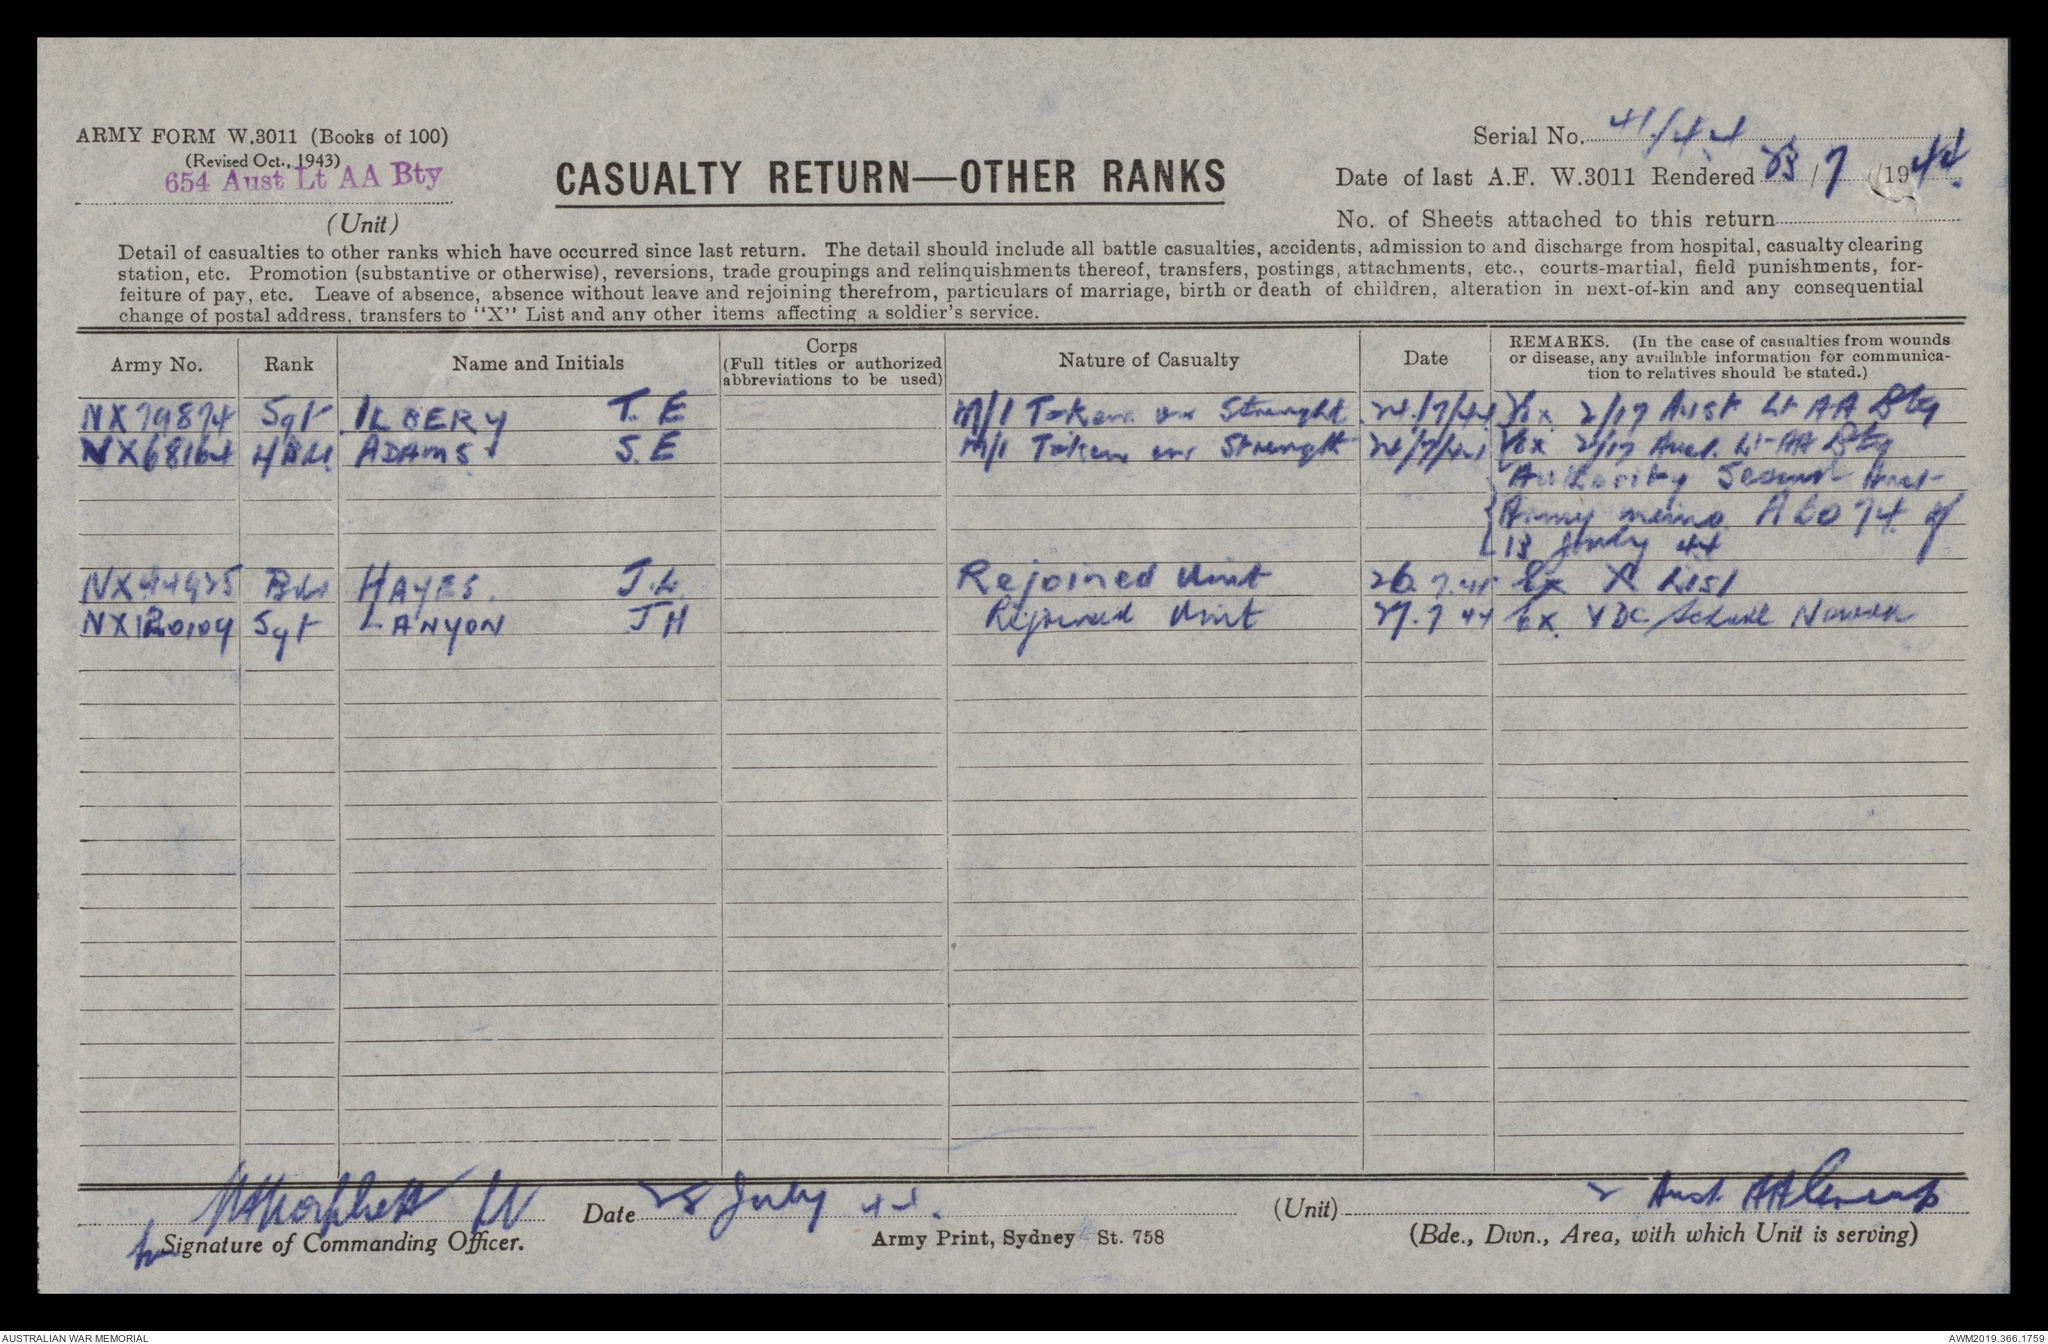 ARMY FORM W.3011 (Books of 100)
(Revised Oct., 1943)
654 Aust Lt AA Bty
(Unit)
CASUALTY RETURN—OTHER RANKS
Serial No. 41/44
Date of last A.F. W.3011 Rendered 23/7/1944.
No. of Sheets attached to this return
Detail of casualties to other ranks which have occurred since last return. The detail should include all battle casualties, accidents, admission to and discharge from hospital, casualty clearing
station, etc. Promotion (substantive or otherwise), reversions, trade groupings and relinquishments thereof, transfers, postings, attachments, etc., courts-martial, field punishments, for-
feiture of pay, etc. Leave of absence, absence without leave and rejoining therefrom, particulars of marriage, birth or death of children, alteration in next-of-kin and any consequential
change of postal address, transfers to "X" List and any other items affecting a soldier's service.
Army No. Rank Name and Initials Corps (Full titles or authorized abbreviations to be used) Nature of Casualty Date REMARKS. (In the case of casualties from wounds or disease, any available information for communica-tion to relatives should be stated.)
NX79874 Sgt ILBERY T. E M/I Taken on Strenght 24/7/44 Ex 2/17 Aust Lt AA Bty
NX68164 ADAMS S. E M/I Taken on Strength 24/7/44 Ex 2/17 Aust. Lt-AA Bty
Authority Second Aust
Army memo A6074 of
13 July 44
NX44935 Bdr HAYES. J. L. Rejoined Unit 26.7.44 Ex X List
NX120109 Sgt LANYON J H Rejoined Unit 27.7 44 Ex. VDC School
Morphett Lt
for Signature of Commanding Officer.
Date 28 July 44.
Army Print, Sydney St. 758
(Unit) 2 Aust AA Group
(Bde., Divn., Area, with which Unit is serving)
AUSTRALIAN WAR MEMORIAL
AWM2019.366.1759